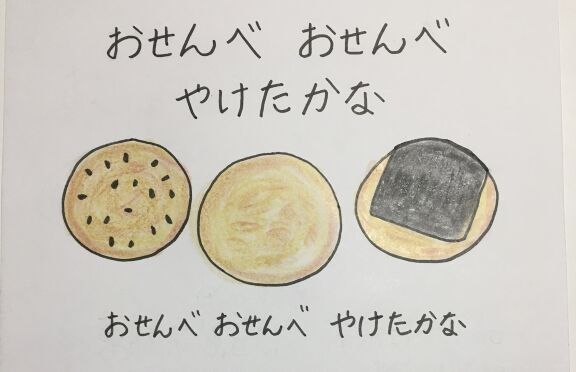 おせんべ おせんべ
やけたかな
おせんべ おせんべ やけたかな